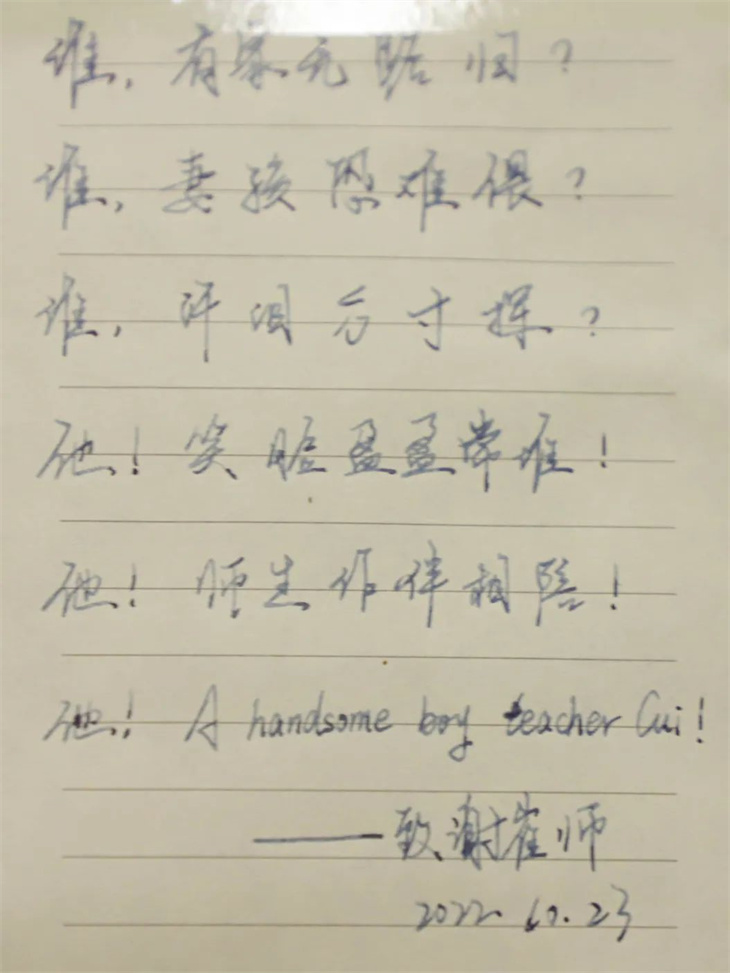 谁，有家无路归？
谁，妻孩恐难偎？
谁，汗泪方寸挥？
他！笑脸盈盈常堆！
他！师生作伴相陪！
他！A handsome boy teacher Cui!
——致谢崔师
2022.10.23